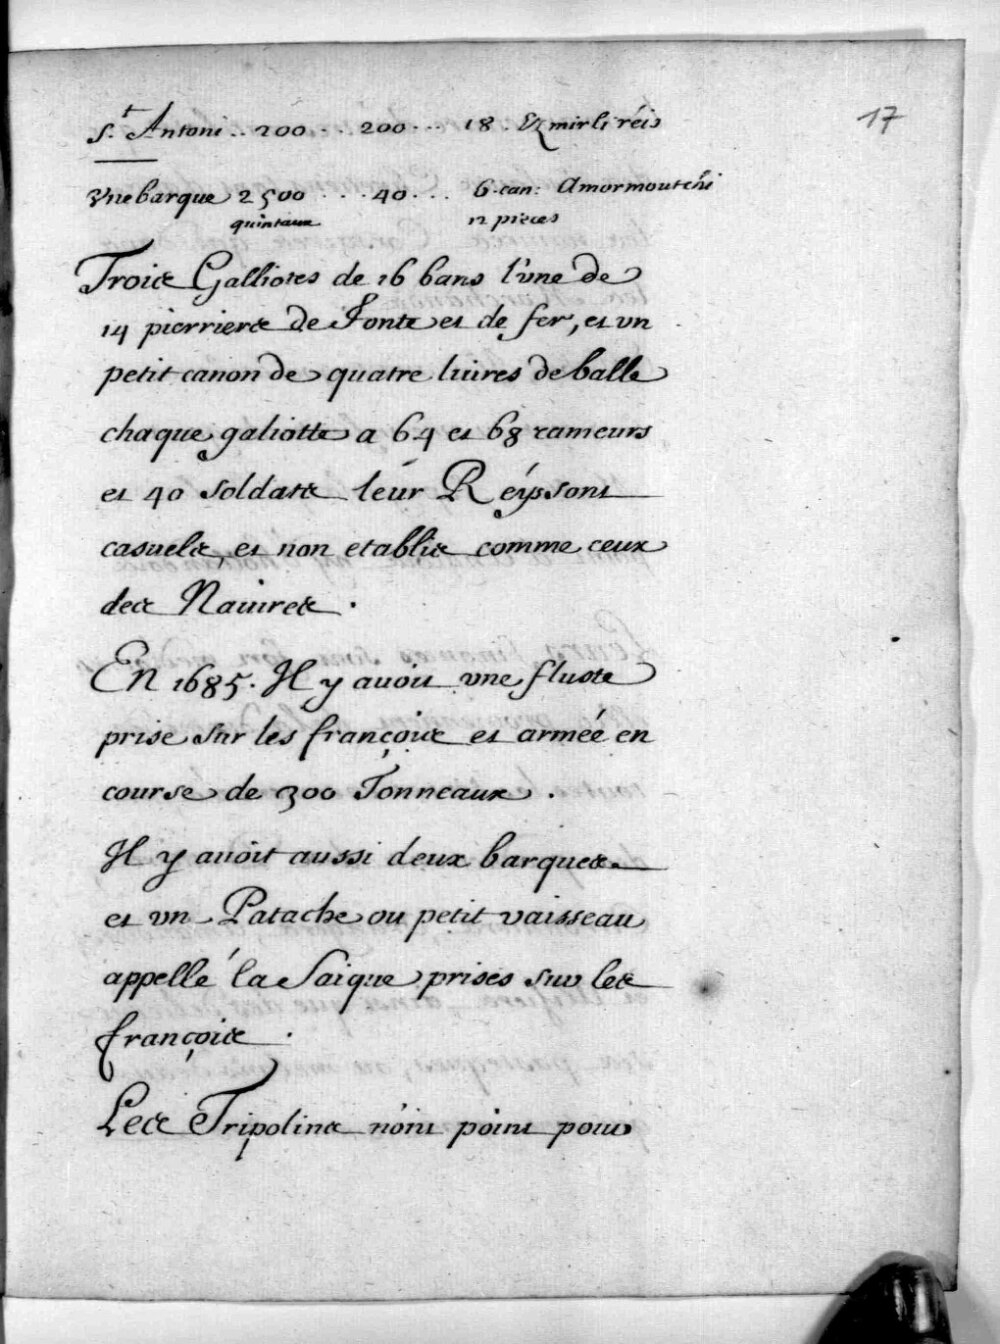 17
S.t Antoni .. 200 . . 200 . . . 18 . Ezmirli réis
Vne barque 2500 . . . 40 . . . 6. can: Amormoutchi
quintaux 12 pieces
Trois Galliotes de 16 bans l'vne de
14 pierriers de Fonte et de fer, et vn
petit canon de quatre liures de balle
chaque galiotte a 64 et 68 rameurs
et 40 soldats leur Reÿs sont
casuels et non etablis comme ceux
des Nauires .
En 1685. Il y auoit vne fluste
prise sur les françois et armée en
course de 300 Tonneaux .
Il y auoit aussi deux barques
et vn Patache ou petit vaisseau
appellé la Saique prises sur les
françois .
Les Tripolins n'ont point pour